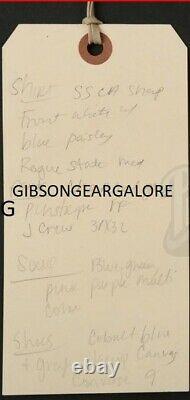 Shirt SS CA Shop
Front white w/
blue paisley
Rogue State med
GIBSONGEARGALORE
G
Pinstripe
J Crew 31X32
Socks Blue, green
pink purple multi
color
Shoes Cobalt blue
+ gray Canvas
Converse 9